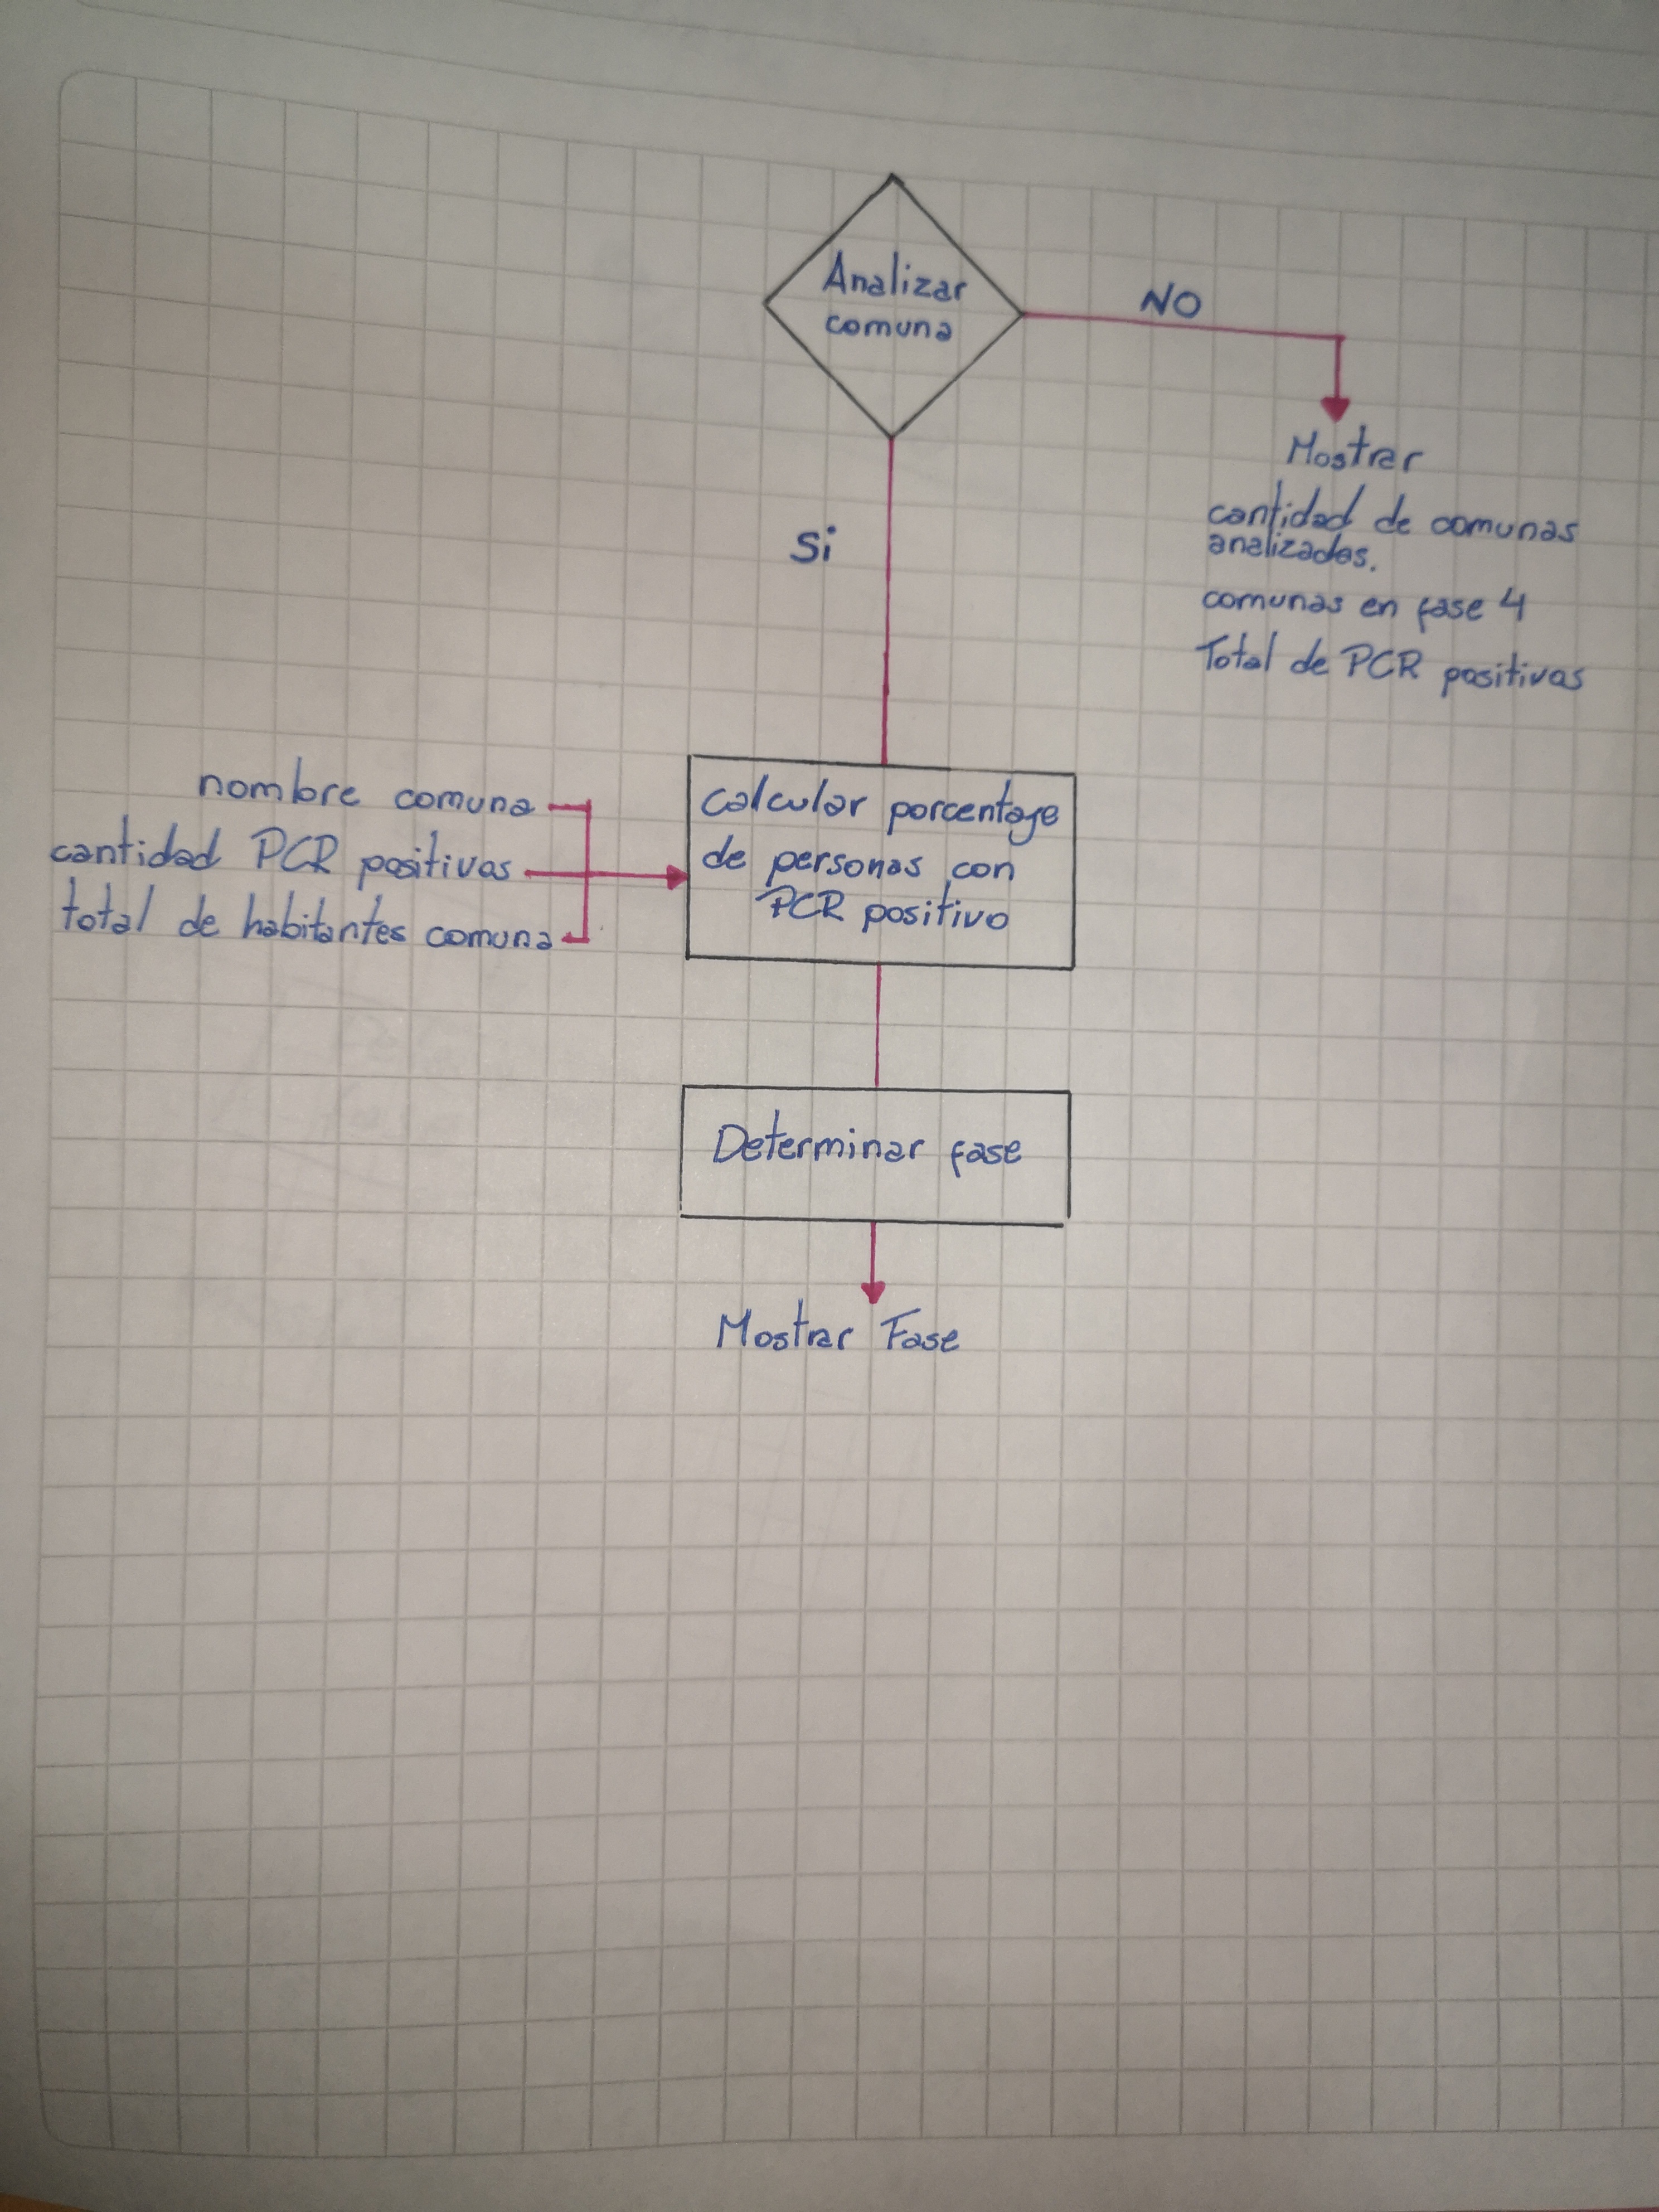 Analizar
comuna
NO
Mostrar
cantidad de comunas
analizadas.
comunas en fase 4
Total de PCR positivas
Si
nombre comuna
cantidad PCR positivas
total de habitantes comuna
Calcular porcentaje
de personas con
PCR positivo
Determinar fase
Mostrar Fase